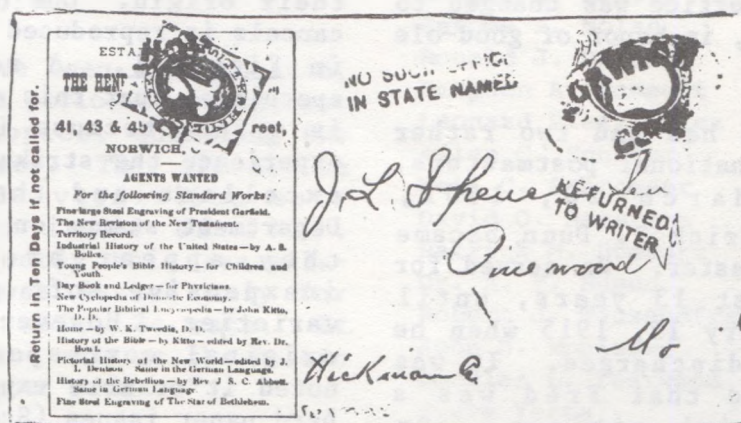 Return in Ten Days if not called for.
ESTA
THE HENRY
41, 43 & 45 reet,
NORWICH,
AGENTS WANTED
For the following Standard Works:
Fine large Steel Engraving of President Garfield.
The New Revision of the New Testament.
Territory Record.
Industrial History of the United States—by A. S.
Bolles.
Young People's Bible History—for Children and
Youth.
Day Book and Ledger for Physicians.
New Cyclopedia of Domestic Economy.
The Popular Biblical Encyclopedia—by John Kitto,
D. D.
Home—by W. K. Tweedie, D. D.
History of the Bible—by Kitto—edited by Rev. Dr.
Pictorial History of the New World—edited by J.
L. Denison Same in the German Language.
History of the Rebellion—by Rev J. S. C. Abbott.
Same in German Language.
Fine Steel Engraving of The Star of Bethlehem.
NO SUCH OFFICE
IN STATE NAMED
NORWICH
RETURNED
TO WRITER
J. L. Spence
Pinewood
Hickman Co.
Mo